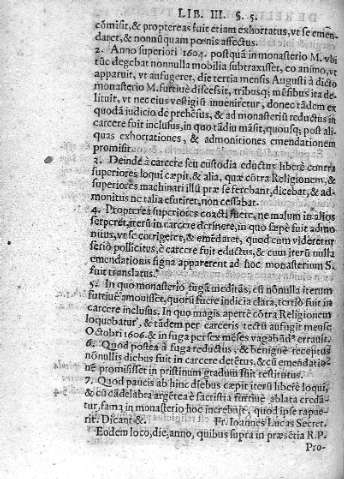 LIB. III. §. 5.
cōmisit, & proptereas fuit etiam exhortatus, vt se emen-
daret, & nonnūquam pœnis affectus.
2. Anno superiori 1604. postquā in monasterio M. vbi
tūc degebat nonnulla mobilia subtraxisset, eo animo, vt
apparuit, vt aufugeret, die tertia mensis Augusti à dicto
monasterio M. furtiuè discessit, tribusq; mēsibus ita de-
lituit, vt nec eius vestigiū inueniretur, donec tādem ex
quodā iudicio de prehēsus, & ad monasteriū reductus in
carcere fuit inclusus, in quo tādiu māsit, quousq; post ali-
quas exhortationes, & admonitiones emendationem
promisit.
3. Deindè à carcere seu custodia eductus liberè contra
superiores loqui cæpit, & alia, quæ cōtra Religionem, &
superiores machinati illū præ se ferebant, dicebat, & ad-
monitus ne talia efutiret, non cessabat.
4. Propterea superiores coacti fuere, ne malum in alios
serperet, iterū in carcere detinere, in quo sæpè fuit admo-
nitus, vt se corrigeret, & emēdaret, quod cum videretur
seriò pollicitus, è carcere fuit eductus, & cum iterū nulla
emendationis signa apparerent ad hoc monasterium S.
fuit translatus.
5. In quo monasterio fugā meditās, cū nonnulla iterum
furtiuè amouisset, quorū fuere indicia clara, tertiò fuit in
carcere inclusus. In quo magis apertè cōtra Religionem
loquebatur, & tādem per carceris tectū aufugit mense
Octobri 1606. & in fuga per sex mēses vagabūdꝰ errauit.
6. Quod postea à fuga reductus, & benignè receptus
nōnullis diebus fuit in carcere detētus, & cū emendatio-
nē promisisset in pristinum gradum fuit restitutus.
7. Quod paucis ab hinc diebus cæpit iterū liberè loqui,
& cū cādelabra argētea è sacristia furtiuè ablata credā-
tur, fama in monasterio hoc increbuit, quod ipse rapue-
rit. Dicant &c. Fr. Ioannes Lucas Secret.
Eodem loco, die, anno, quibus supra in præsētia R. P.
Pro-